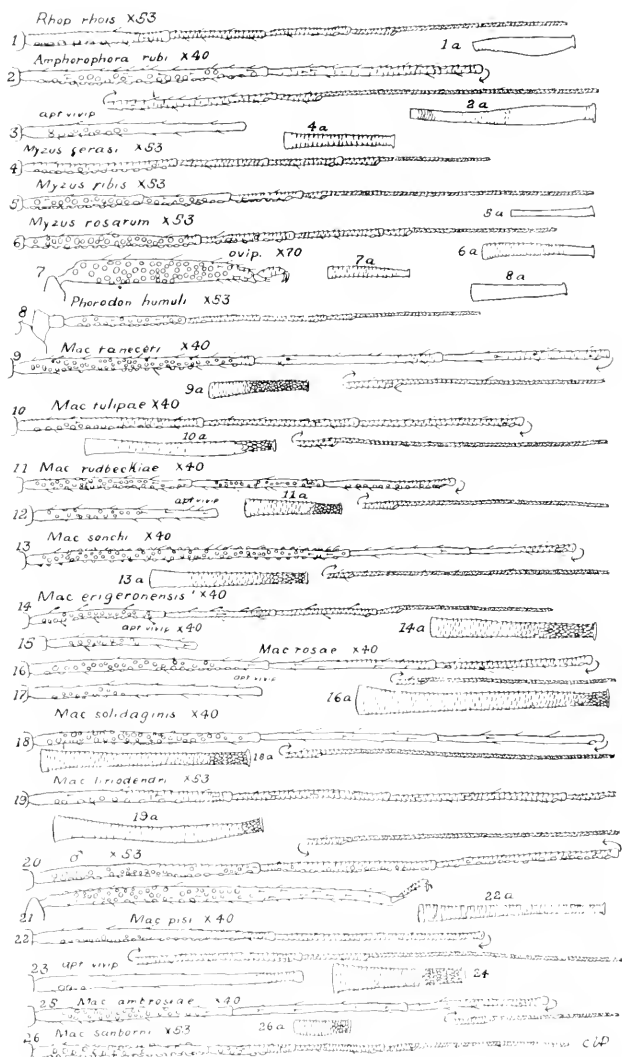 Rhop rhois X53
1
1a
Amphorophora rubi X40
2
2a
apt vivip
3
4a
Myzus cerasi X53
4
Myzus ribis X53
5
5a
Myzus rosarum X53
6
6a
ovip. X70
7
7a
8a
Phorodon humuli X53
8
Mac tanaceti X40
9
9a
Mac tulipae X40
10
10a
Mac rudbeckiae X40
11
apt vivip
12
11a
Mac sonchi X40
13
13a
Mac erigeronensis X40
14
14a
apt vivip X40
15
Mac rosae X40
16
apt vivip
17
16a
Mac solidaginis X40
18
18a
Mac liriodendri X53
19
19a
20 ♂ X53
21
22a
Mac pisi X40
22
23 apt vivip
24
25 Mac ambrosiae X40
26 Mac sanborni X53
26a